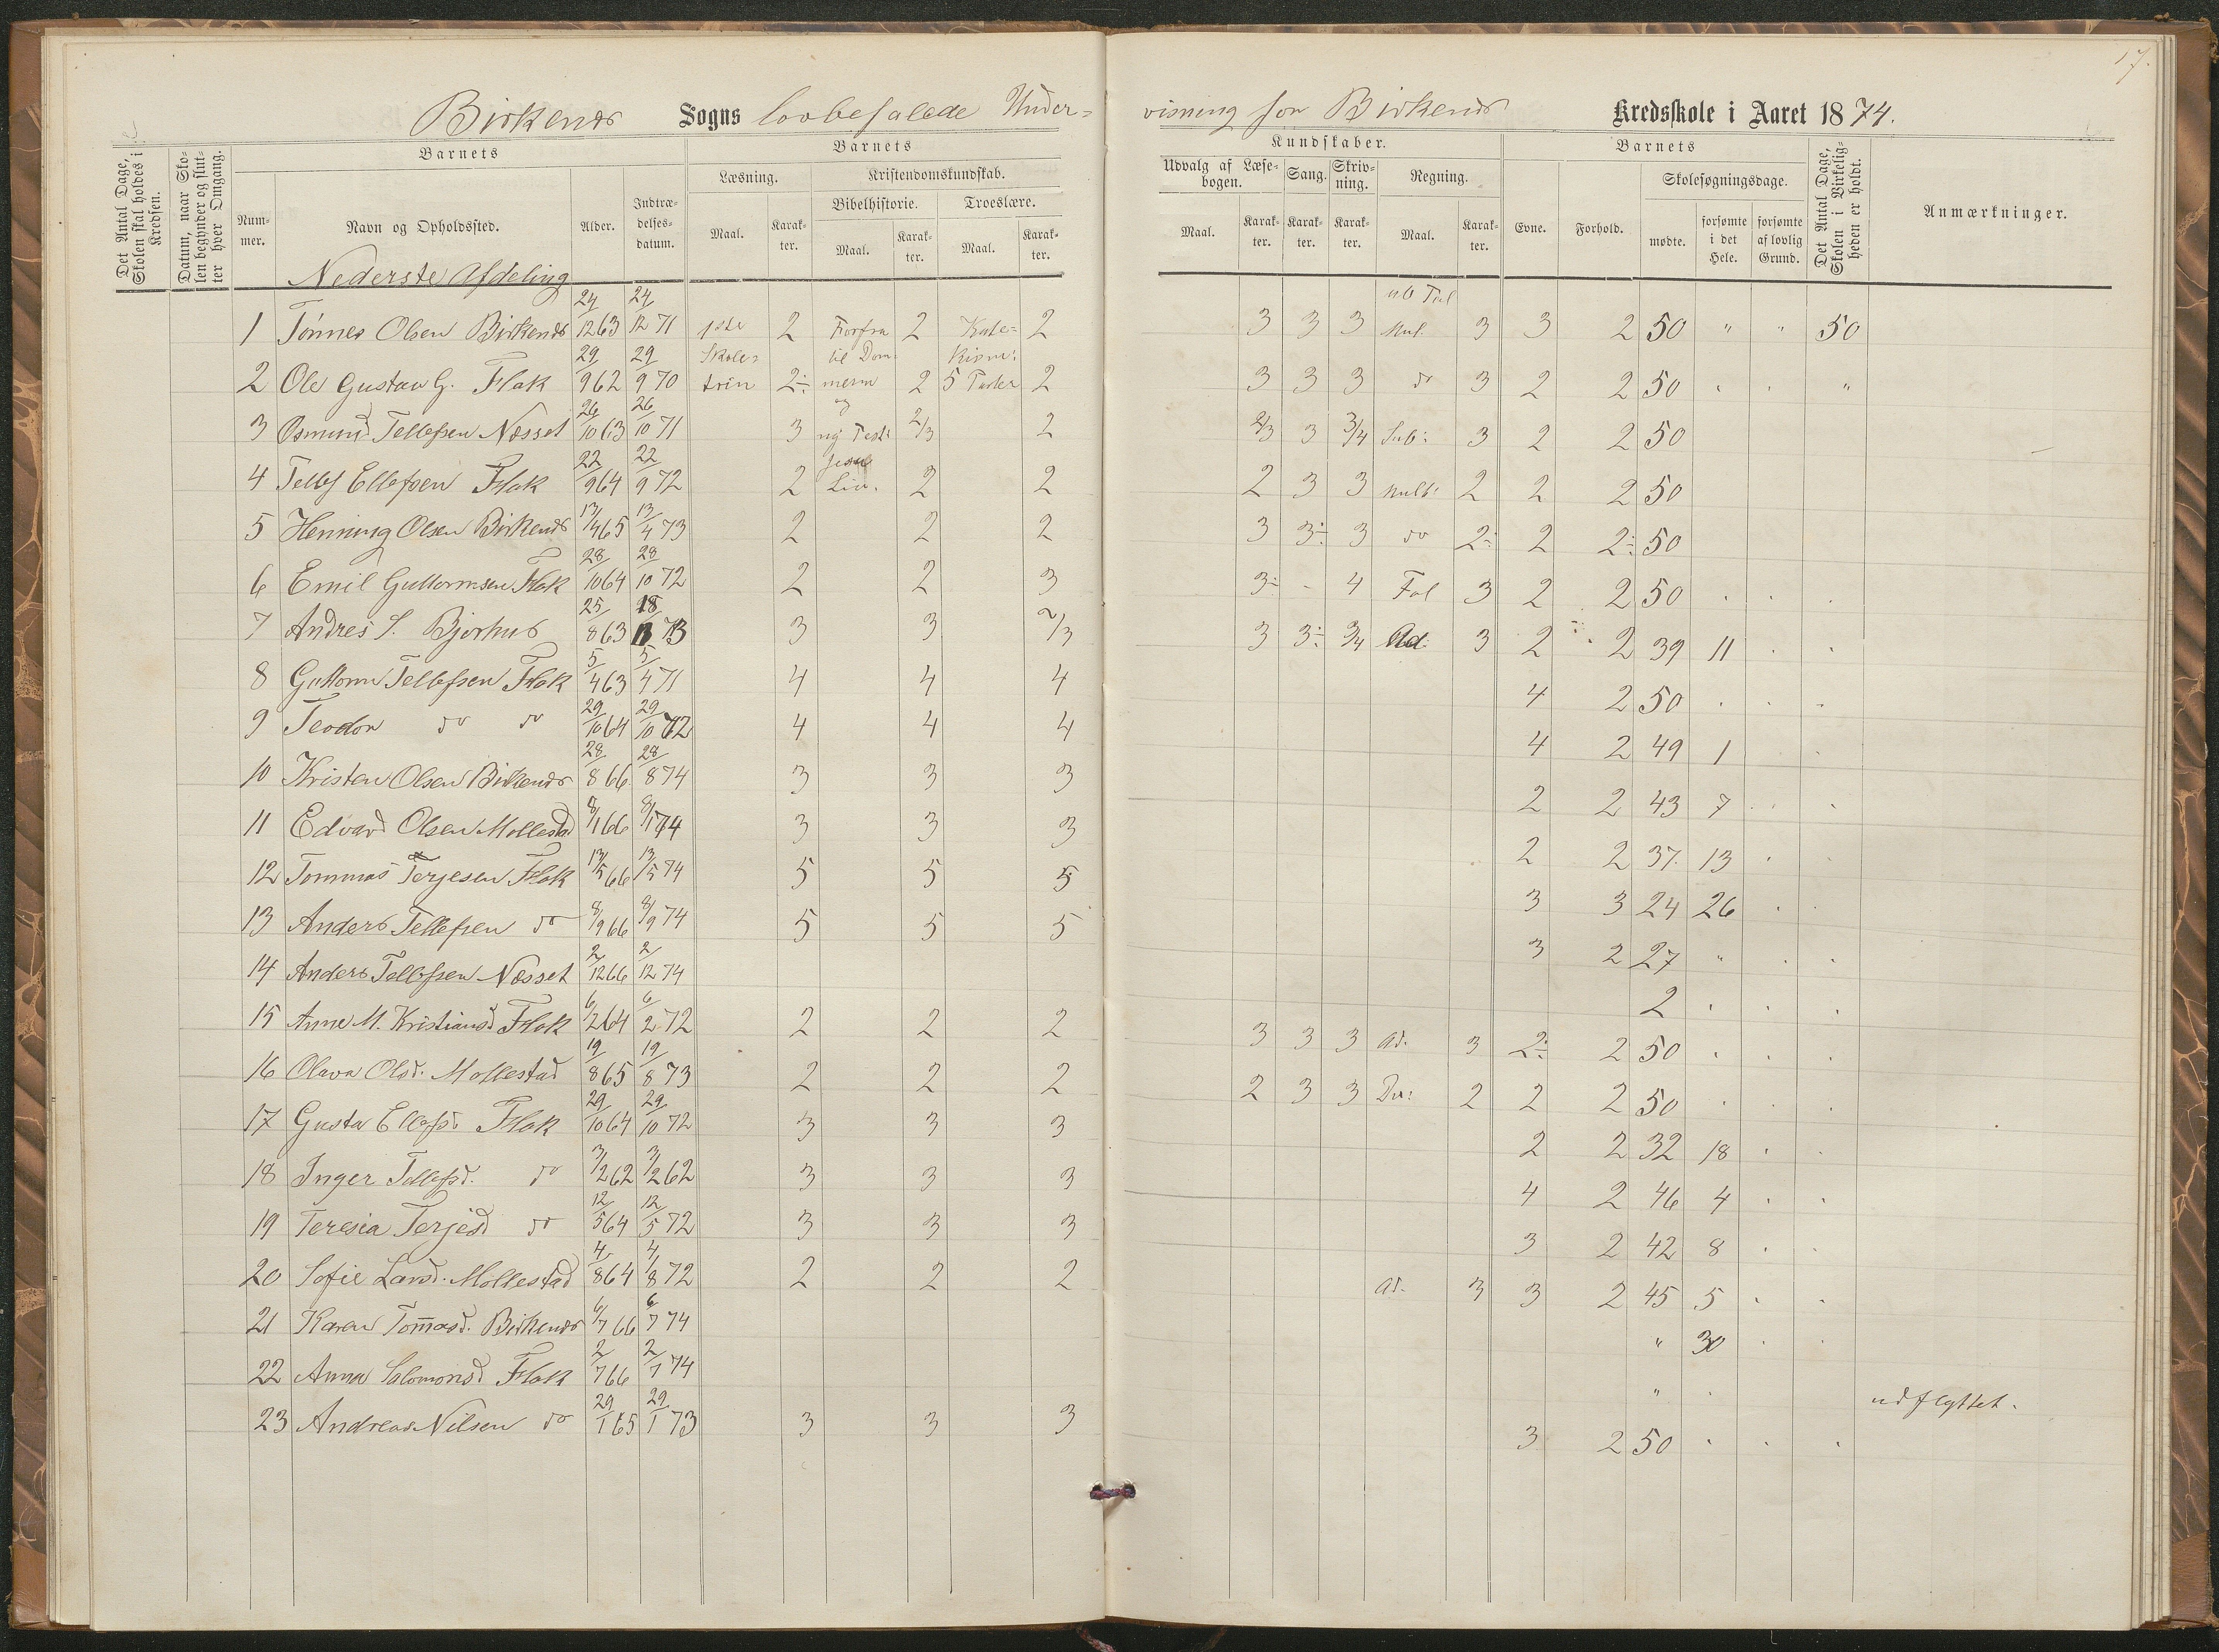 17.
Birkenes Sogns lovbefalede Under-
visning for Birkenes Kredsskole i Aaret 1874.
Det Antal Dage, Skolen skal holdes i Kredsen.
Datum, naar Skolen begynder og slutter hver Omgang.
Barnets
Nummer.
Navn og Opholdssted.
Alder.
Indtrædelsesdatum.
Barnets
Læsning.
Maal.
Karakter.
Kristendomskundskab.
Bibelhistorie.
Maal.
Karakter.
Troeslære.
Maal.
Karakter.
Kundskaber.
Udvalg af Læsebogen.
Maal.
Karakter.
Sang.
Karakter.
Skrivning.
Karakter.
Regning.
Maal.
Karakter.
Barnets
Evne.
Forhold.
Skolesøgningsdage.
mødte.
forsømte i det Hele.
forsømte af lovlig Grund.
Det Antal Dage, Skolen i Virkeligheden er holdt.
Anmærkninger.
Nederste Afdeling
1 Tönnes Olsen Birkenes 24/12 63 24/12 71 1ste 2 Forfra 2 Kate= 2 3 3 3 Mul. 3 3 2 50 " " 50
2 Ole Gustav G. Flak 29/9 62 29/9 70 Skole= trin 2÷ til Dom merne 2 kisme: 5 Parter 2 3 3 3 do 3 2 2 50 . . "
3 Osmund Tellefsen Næsset 26/10 63 26/10 71 3 og ny Test: 2/3 2 2/3 3 3/4 Sub: 3 2 2 50
4 Tellef Ellefsen Flak 22/9 64 22/9 72 2 Jesu Liv. 2 2 2 3 3 Mult: 2 2 2 50
5 Henning Olsen Birkenes 13/4 65 13/4 73 2 2 2 3 3÷ 3 do 2÷ 2 2÷ 50
6 Emil Guttormsen Flak 28/10 64 28/10 72 2 2 3 3÷ - 4 3 2 2 50 . . .
7 Andres S. Bjorhus 25/8 63 18/ 73 3 3 2/3 3 3÷ 3/4 Ad. 3 2 2 39 11 . .
8 Guttorm Tellefsen Flak 5/4 63 5/4 71 4 4 4 4 2 50 . . .
9 Teodor do do 29/10 64 29/10 72 4 4 4 4 2 49 1 .
10 Kristen Olsen Birkenes 28/8 66 28/8 74 3 3 3 2 2 43 7 . .
11 Edvard Olsen Mollestad 8/1 66 8/1 74 3 3 3 2 2 37. 13 .
12 Tommas Terjesen Flak 13/5 66 13/5 74 5 5 5 3 3 24 26 .
13 Anders Tellefsen do 8/9 66 8/9 74 5 5 5 3 2 27 " . .
14 Anders Tellefsen Næsset 2/12 66 2/12 74 2 . . .
15 Anne M. Kristiansd Flak 6/2 64 6/2 72 2 2 2 3 3 3 Ad. 3 2÷ 2 50 . . .
16 Olava Olsd. Mollestad 19/8 65 19/8 73 2 2 2 2 3 3 2 2 2 50 . . .
17 Gusta Ellefsd. Flak 29/10 64 29/10 72 3 3 3 2 2 32 18 . .
18 Inger Tellefsd. do 3/2 62 3/2 62 3 3 3 4 2 46 4 . .
19 Teresia Terjesd do 12/5 64 12/5 72 3 3 3 3 2 42 8 . .
20 Sofie Larsd. Mollestad 4/8 64 4/8 72 2 2 2 Ad. 3 3 2 45 5 . .
21 Karen Tommasd. Birkenes 6/7 66 6/7 74 " 30 . .
22 Anna Salomonsd Flak 2/7 66 2/7 74 " . udflyttet.
23 Andreas Nilsen do 29/1 65 29/1 73 3 3 3 3 2 50 . . .